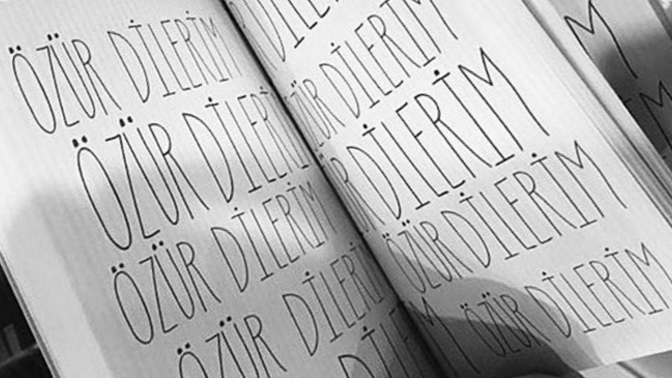 ÖZÜR DİLERİM
ÖZÜR DİLERİM
ÖZÜR DİLERİM
ÖZÜR DİLERİM
DİLERİM
ÖZÜR DİLERİM
ÖZÜR DİLERİM
ÖZÜR DİLERİM
ÖZÜR DİLERİM